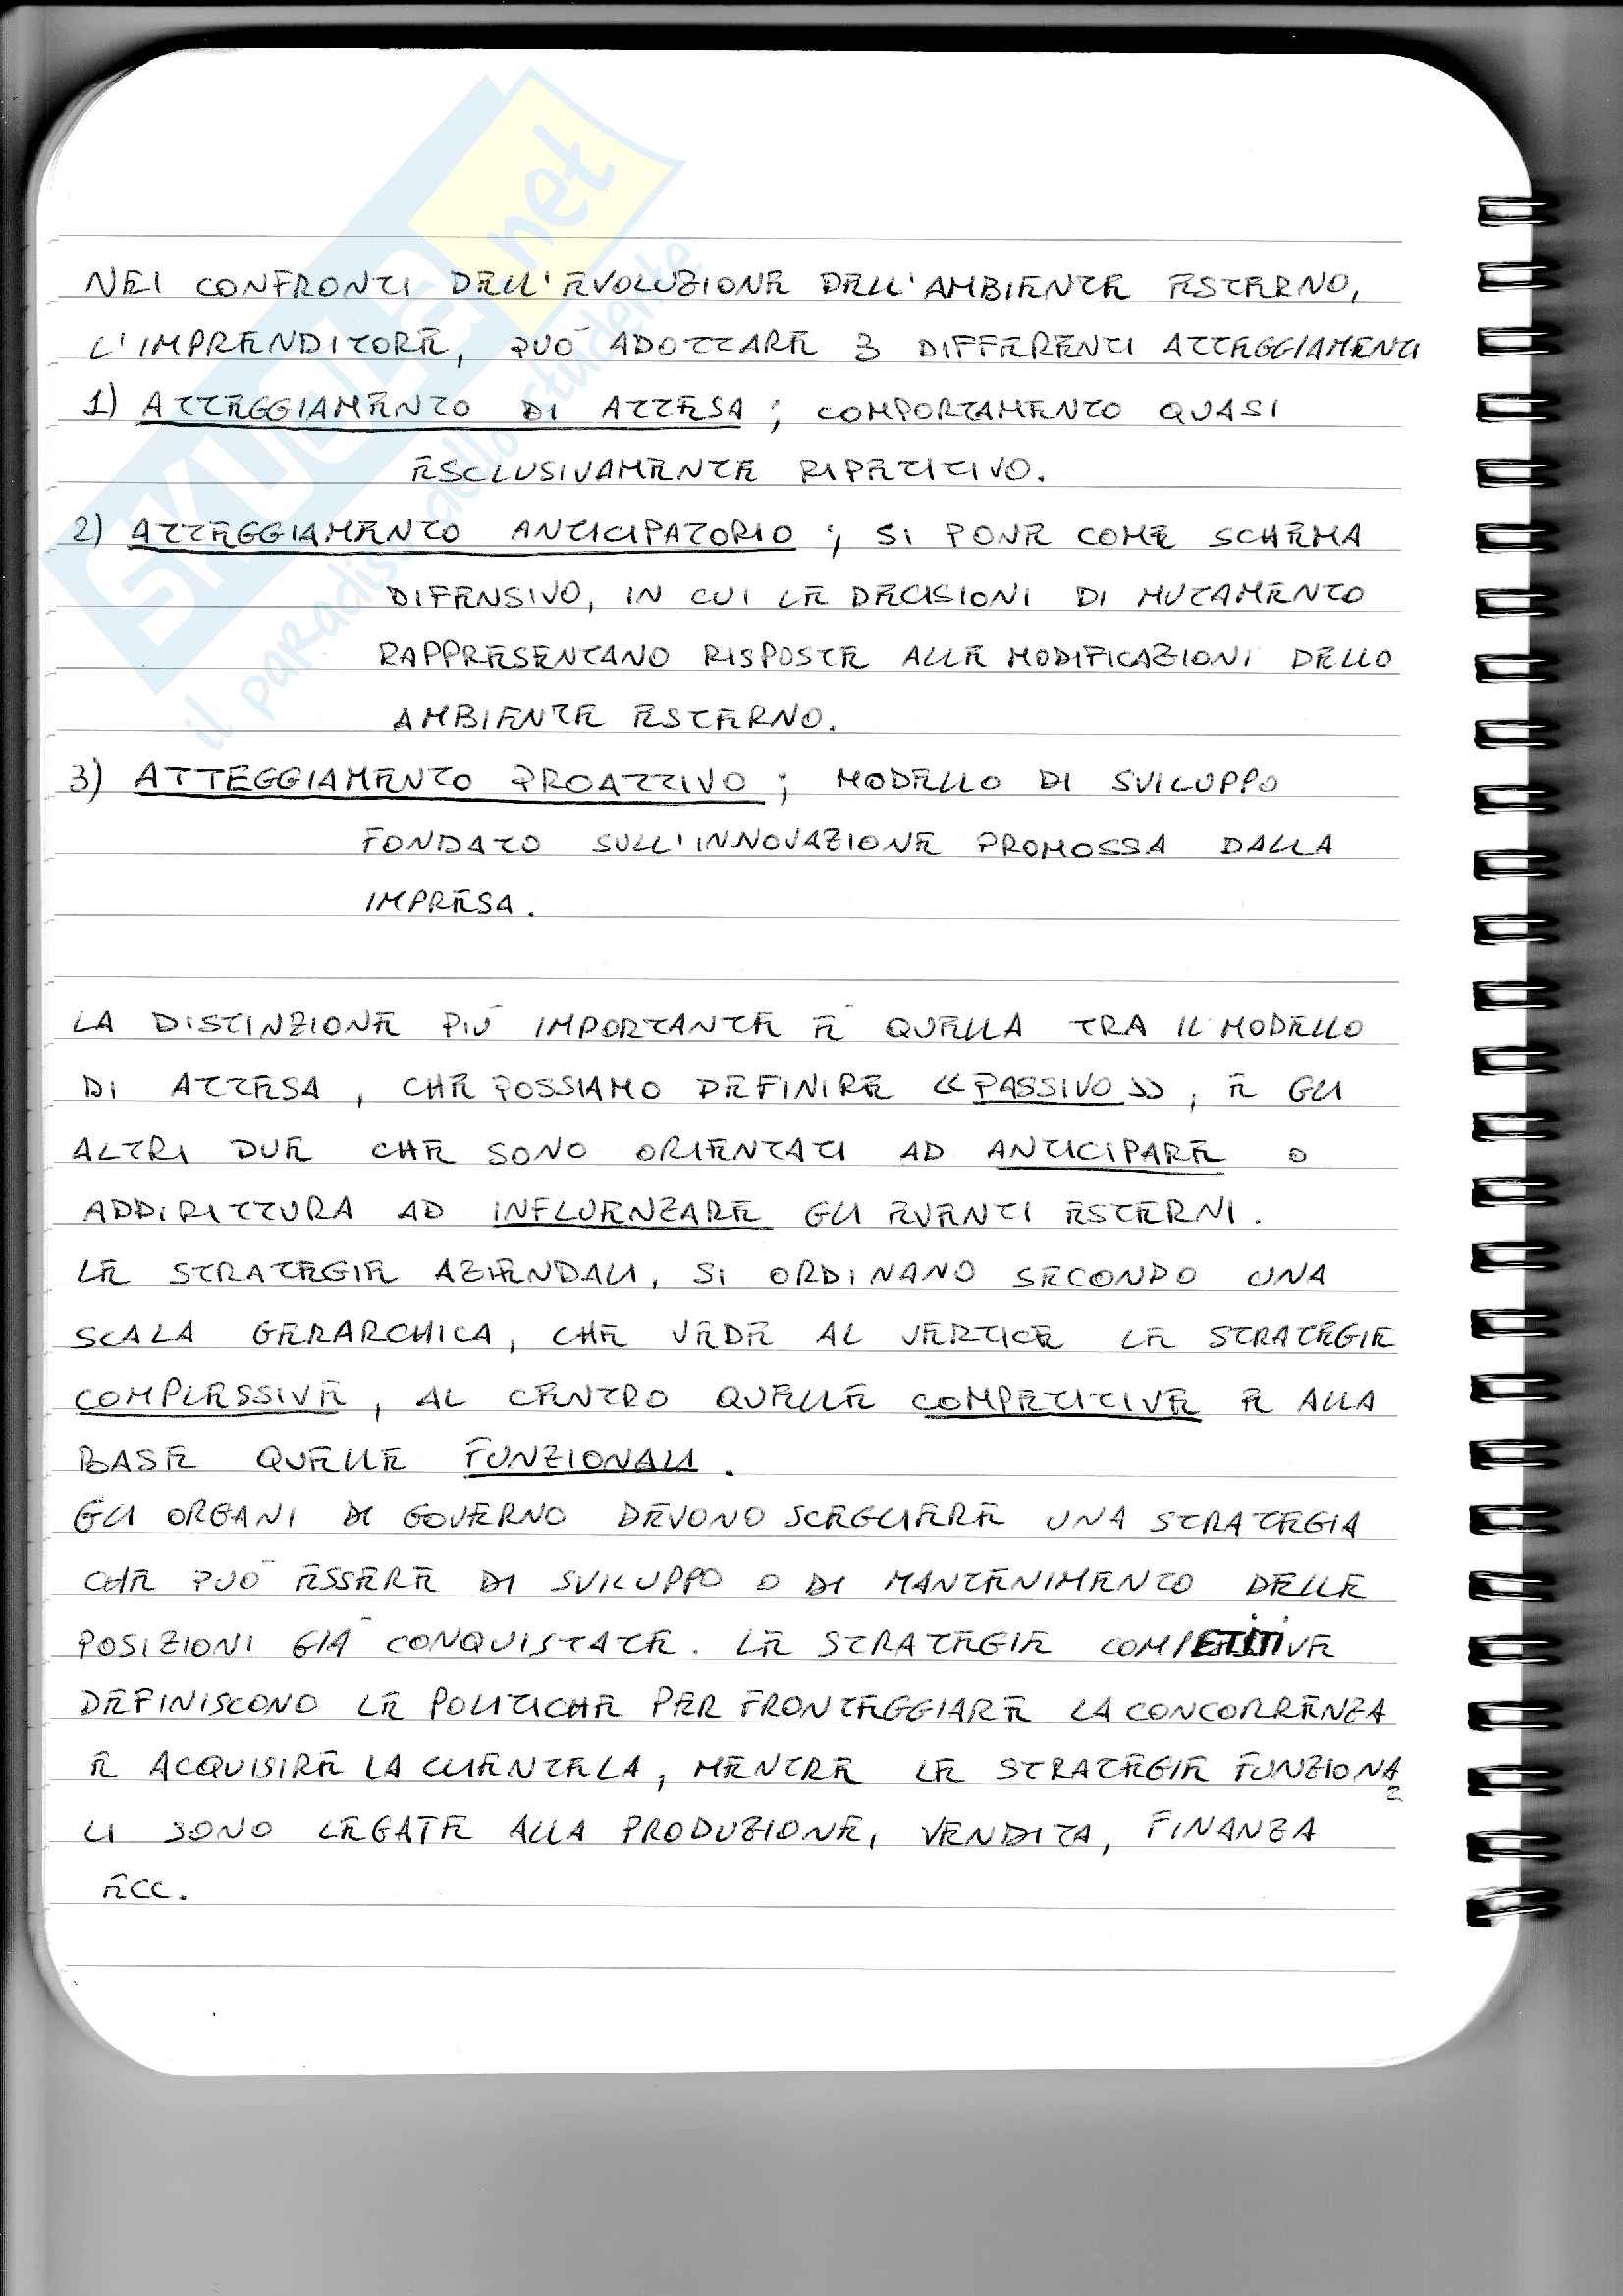 NEI CONFRONTI DELL'EVOLUZIONE DELL'AMBIENTE ESTERNO,
L'IMPRENDITORE, PUÒ ADOTTARE 3 DIFFERENTI ATTEGGIAMENTI
1) ATTEGGIAMENTO DI ATTESA; COMPORTAMENTO QUASI
ESCLUSIVAMENTE RIPETITIVO.
2) ATTEGGIAMENTO ANTICIPATORIO; SI PONE COME SCHEMA
DIFENSIVO, IN CUI LE DECISIONI DI MUTAMENTO
RAPPRESENTANO RISPOSTE ALLE MODIFICAZIONI DELLO
AMBIENTE ESTERNO.
3) ATTEGGIAMENTO PROATTIVO; MODELLO DI SVILUPPO
FONDATO SULL'INNOVAZIONE PROMOSSA DALLA
IMPRESA.
LA DISTINZIONE PIÙ IMPORTANTE È QUELLA TRA IL MODELLO
DI ATTESA, CHE POSSIAMO DEFINIRE «PASSIVO», E GLI
ALTRI DUE CHE SONO ORIENTATI AD ANTICIPARE O
ADDIRITTURA AD INFLUENZARE GLI EVENTI ESTERNI.
LE STRATEGIE AZIENDALI, SI ORDINANO SECONDO UNA
SCALA GERARCHICA, CHE VEDE AL VERTICE LE STRATEGIE
COMPLESSIVE, AL CENTRO QUELLE COMPETITIVE E ALLA
BASE QUELLE FUNZIONALI.
GLI ORGANI DI GOVERNO DEVONO SCEGLIERE UNA STRATEGIA
CHE PUÒ ESSERE DI SVILUPPO O DI MANTENIMENTO DELLE
POSIZIONI GIÀ CONQUISTATE. LE STRATEGIE COMPETITIVE
DEFINISCONO LE POLITICHE PER FRONTEGGIARE LA CONCORRENZA
E ACQUISIRE LA CLIENTELA, MENTRE LE STRATEGIE FUNZIONA
LI SONO LEGATE ALLA PRODUZIONE, VENDITA, FINANZA
ECC.
SKUOLA.net
il paradiso dello studente